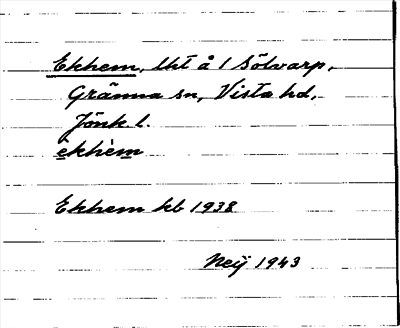 Ekhem, lht å 1 Sölvarp,
Gränna sn, Vista hd,
Jönk l.
èkhèm
Ekhem kb 1938
Neij 1943